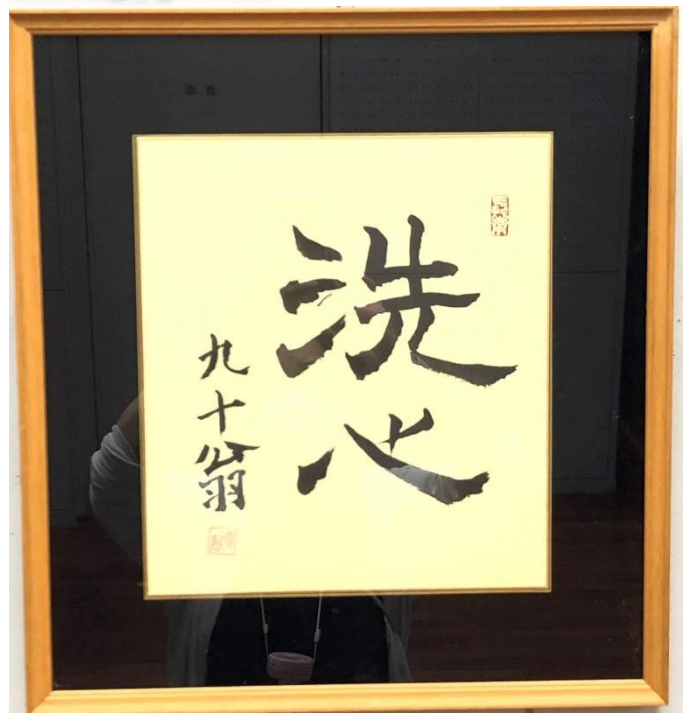 洗心
九十翁